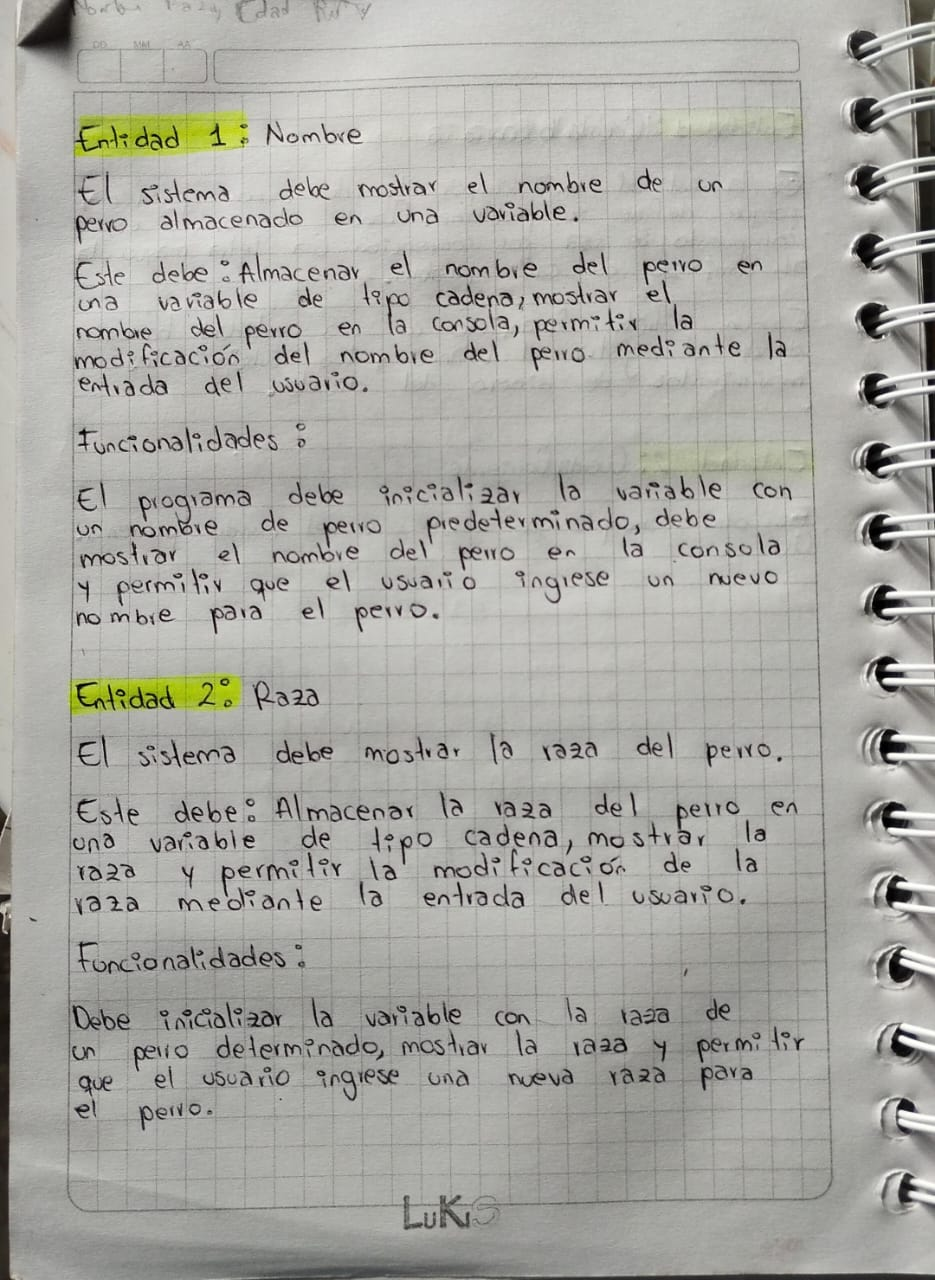 Edad
DD MM AA
Entidad 1: Nombre
El sistema debe mostrar el nombre de un
perro almacenado en una variable.
Este debe: Almacenar el nombre del perro en
una variable de tipo cadena, mostrar el
nombre del perro en la consola, permitir la
modificación del nombre del perro mediante la
entrada del usuario.
Funcionalidades:
El programa debe inicializar la variable con
un nombre de perro predeterminado, debe
mostrar el nombre del perro en la consola
y permitir que el usuario ingrese un nuevo
nombre para el perro.
Entidad 2: Raza
El sistema debe mostrar la raza del perro.
Este debe: Almacenar la raza del perro en
una variable de tipo cadena, mostrar la
raza y permitir la modificación de la
raza mediante la entrada del usuario.
Funcionalidades:
Debe inicializar la variable con la raza de
un perro determinado, mostrar la raza y permitir
que el usuario ingrese una nueva raza para
el perro.
LUKIS